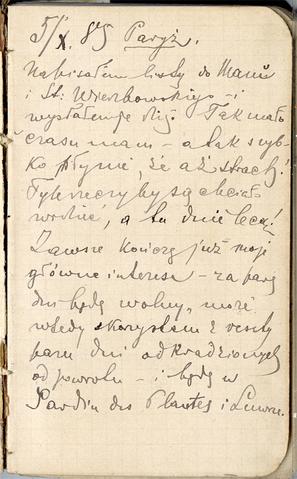 5/X. 89 Paryż.
Napisałem listy do Mamy
i St. Wierzbowskiego – i
wysłałem je dziś. Tak mało
czasu mam – a tak szyb-
ko płynie, że aż strach!
Tyle rzeczy by się chciało
zrobić, a tu dnie lecą!
Zawsze kończę już moje
główne interesa – za parę
dni będę wolny, może
wtedy skorzystam z reszty
paru dni odkradzionych
od powrotu – i będę w
Jardin des Plantes i Luwrze.